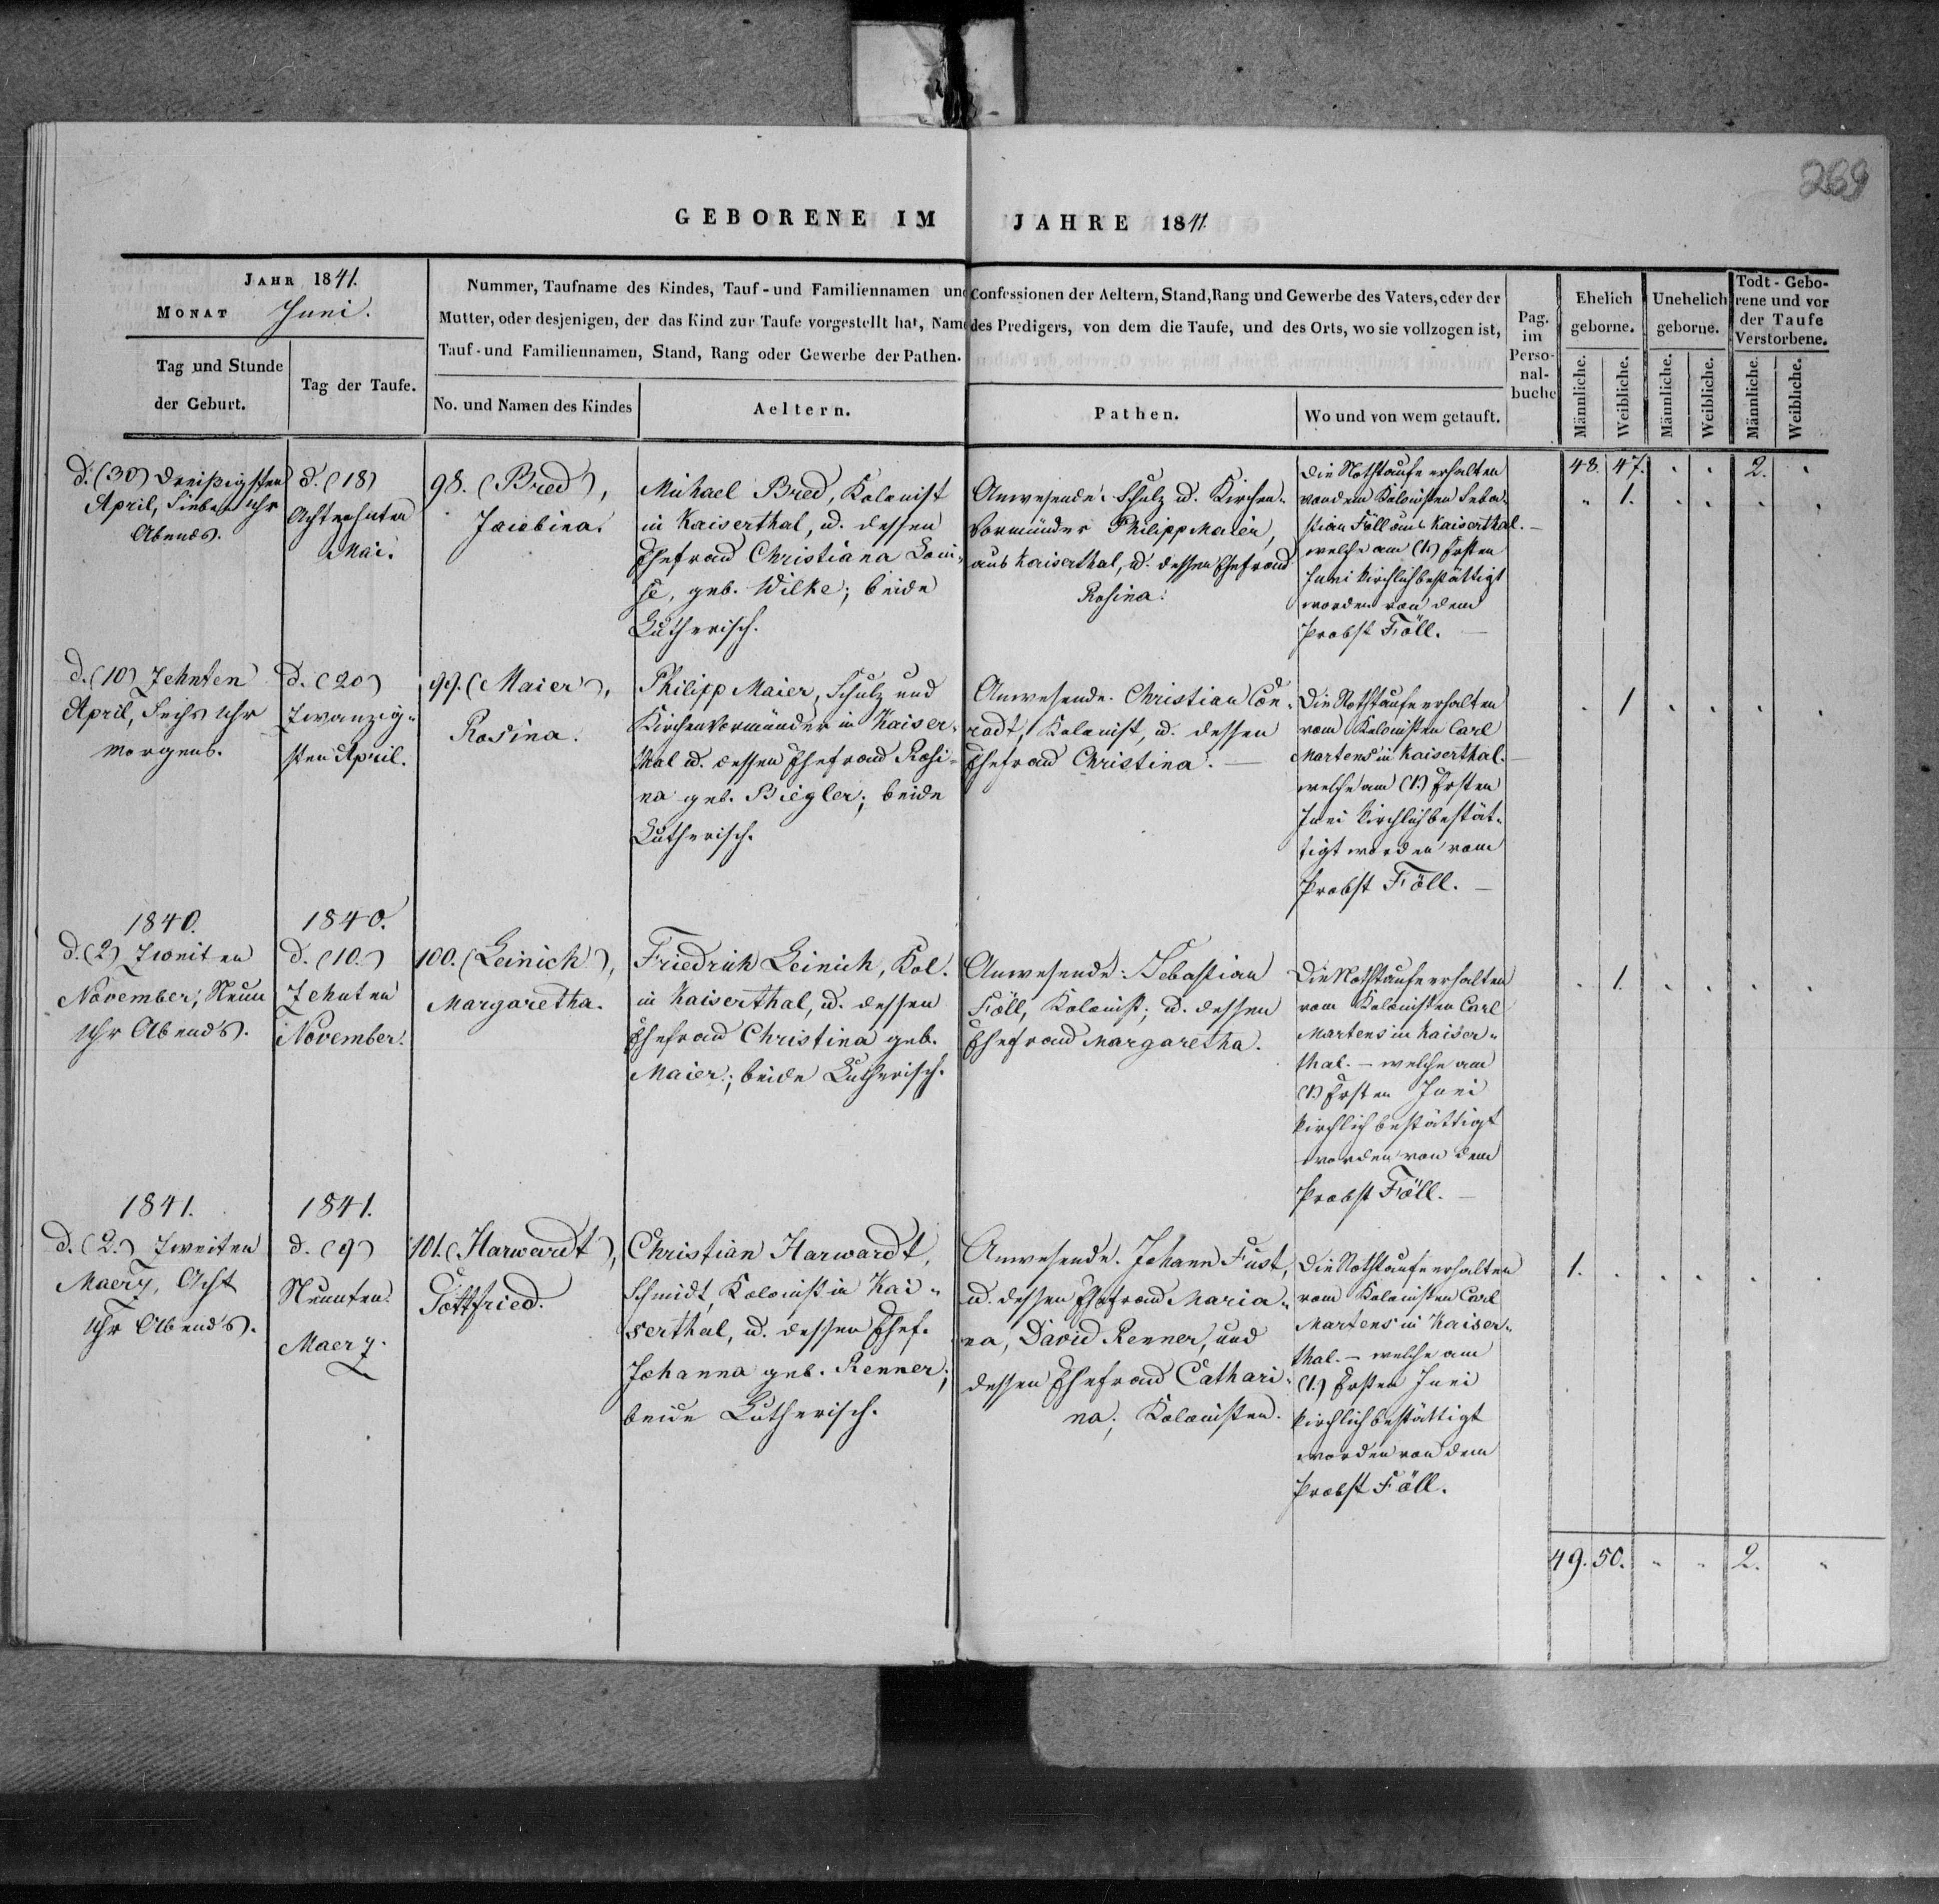 269
GEBORENE IM JAHRE 1841.
JAHR 1841.
MONAT Juni.
Tag und Stunde
der Geburt.
Tag der Taufe.
Nummer, Taufname des Kindes, Tauf- und Familiennamen und Confessionen der Aeltern, Stand, Rang und Gewerbe des Vaters, oder der
Mutter, oder desjenigen, der das Kind zur Taufe vorgestellt hat, Name des Predigers, von dem die Taufe, und des Orts, wo sie vollzogen ist,
Tauf- und Familiennamen, Stand, Rang oder Gewerbe der Pathen.
No. und Namen des Kindes
Aeltern.
Pathen.
Wo und von wem getauft.
Pag.
im
Perso-
nal-
buche
Ehelich
geborne.
Unehelich
geborne.
Todt-Gebo-
rene und vor
der Taufe
Verstorbene.
Männliche.
Weibliche.
Männliche.
Weibliche.
Männliche.
Weibliche.
48. 47. . . 2. .
d. (30) Dreißigsten
April, Sieben Uhr
Abends.
d. (18)
Achtzehnten
Mai.
98. (Bred),
Jacobina.
Michael Bred, Kolonist
in Kaiserthal, u. dessen
Ehefrau Christiana Loui-
se, geb. Wilke; beide
Lutherisch.
Anwesende: Schulz u. Kirchen-
Vormünder Philipp Maier,
aus Kaiserthal, u. dessen Ehefrau
Rosina.
Die Nothtaufe erhalten
von dem Kolonisten Seba-
stian Föll aus Kaiserthal. –
welche am (1.) Ersten
Juni kirchlich bestättigt
worden von dem
Probst Föll. –
. 1. . . . .
d. (10) Zehnten
April, Sechs Uhr
morgens.
d. (20)
Zwanzig-
sten April.
99. (Maier),
Rosina.
Philipp Maier, Schulz und
Kirchenvormünder in Kaiser-
thal u. dessen Ehefrau Rosi-
na geb. Biegler; beide
Lutherisch.
Anwesende: Christian Con-
radt, Kolonist, u. dessen
Ehefrau Christina. –
Die Nothtaufe erhalten
vom Kolonisten Carl
Martens in Kaiserthal. –
welche am (1.) Ersten
Juni kirchlich bestät-
tigt worden vom
Probst Föll. –
. 1 . . . .
1840.
d. (2) Zweiten
November, Neun
Uhr Abends.
1840.
d. (10.)
Zehnten
November.
100. (Leinich),
Margaretha.
Friedrich Leinich, Kol.
in Kaiserthal, u. dessen
Ehefrau Christina geb.
Maier; beide Lutherisch.
Anwesende: Sebastian
Föll, Kolonist; u. dessen
Ehefrau Margaretha.
Die Nothtaufe erhalten
vom Kolonisten Carl
Martens in Kaiser-
thal. – welche am
(1.) Ersten Juni
kirchlich bestättigt
worden von dem
Probst Föll. –
. 1. . . . .
1841.
d. (2.) Zweiten
Maerz, Acht
Uhr Abends.
1841.
d. (9)
Neunten
Maerz.
101. (Harwardt),
Gottfried.
Christian Harwardt,
Schmidt, Kolonist in Kai-
serthal, u. dessen Ehef.
Johanna geb. Renner;
beide Lutherisch.
Anwesende: Johann Fust,
u. dessen Ehefrau Maria-
na, David Renner, und
dessen Ehefrau Cathari-
na; Kolonisten.
Die Nothtaufe erhalten
vom Kolonisten Carl
Martens in Kaiser-
thal. – welche am
(1.) Ersten Juni
kirchlich bestättigt
worden von dem
Probst Föll.
1. . . . . .
49. 50. . . 2. .